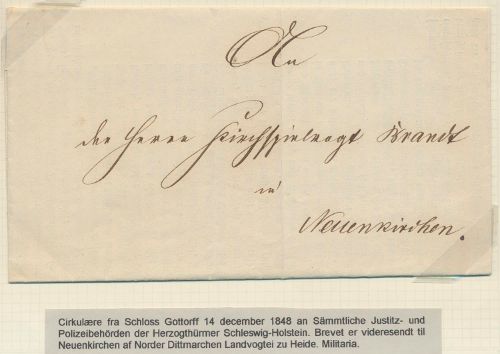 An
den Herrn Kirchspielvogt Brandt
in
Neuenkirchen.
Cirkulære fra Schloss Gottorff 14 december 1848 an Sämmtliche Justitz- und
Polizeibehörden der Herzogthürmer Schleswig-Holstein. Brevet er videresendt til
Neuenkirchen af Norder Dittmarchen Landvogtei zu Heide. Militaria.